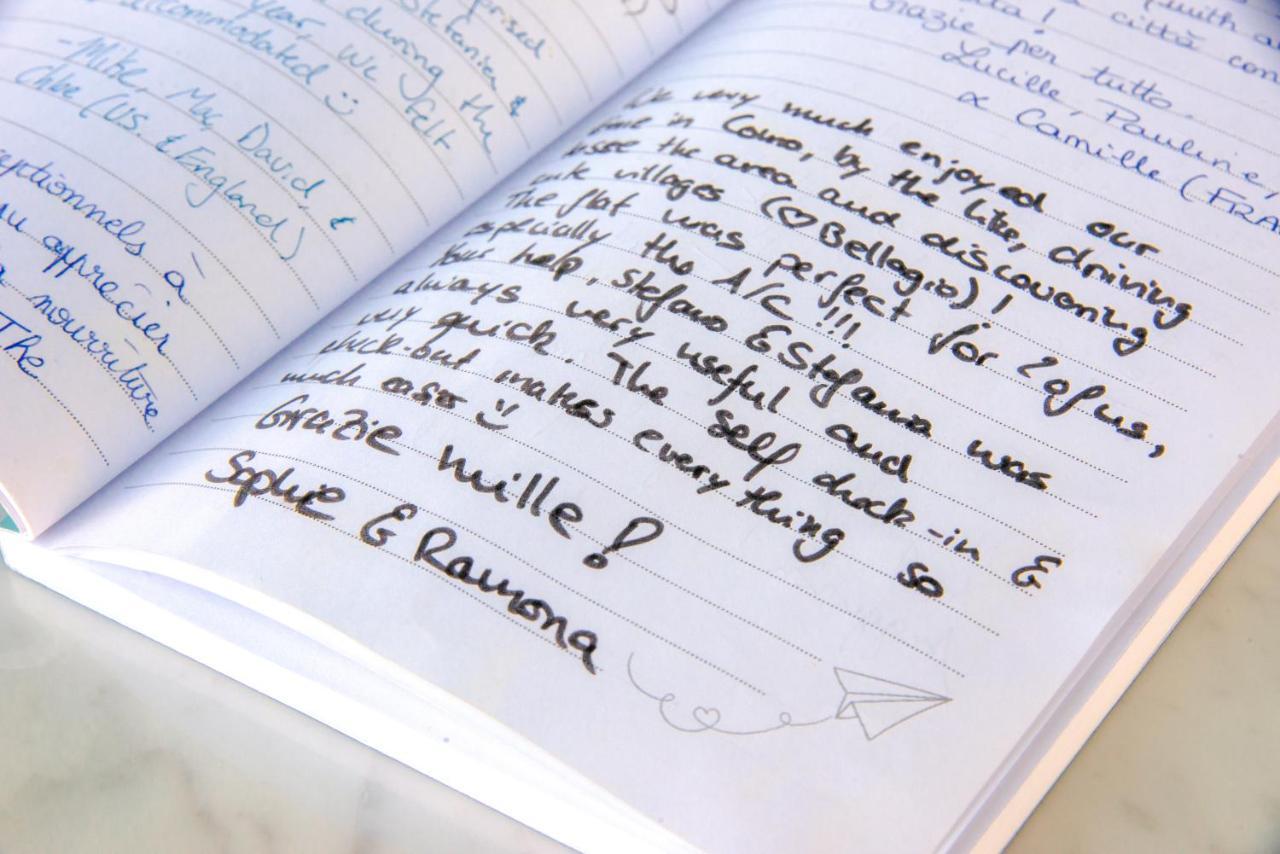 prised
Stefania &
during the
year, we felt
accommodated :)
-Mike, Mac, David, &
Chloe (US. & England)
ceptionnels à
su apprécier
nourriture
The
(with a
città con
ta!
Grazie per tutto.
Lucille, Pauline,
& Camille (FRA
We very much enjoyed our
time in Como, by the like, driving
the area and discovering
cute villages (♡ Bellagio)!
The flat was perfect for 2 of us,
especially the A/C !!!
Your help, Stefano & Stefania was
always very useful and
very quick. The self check-in &
check-out makes everything so
much easier :)
Grazie mille!
Sophie & Ramona